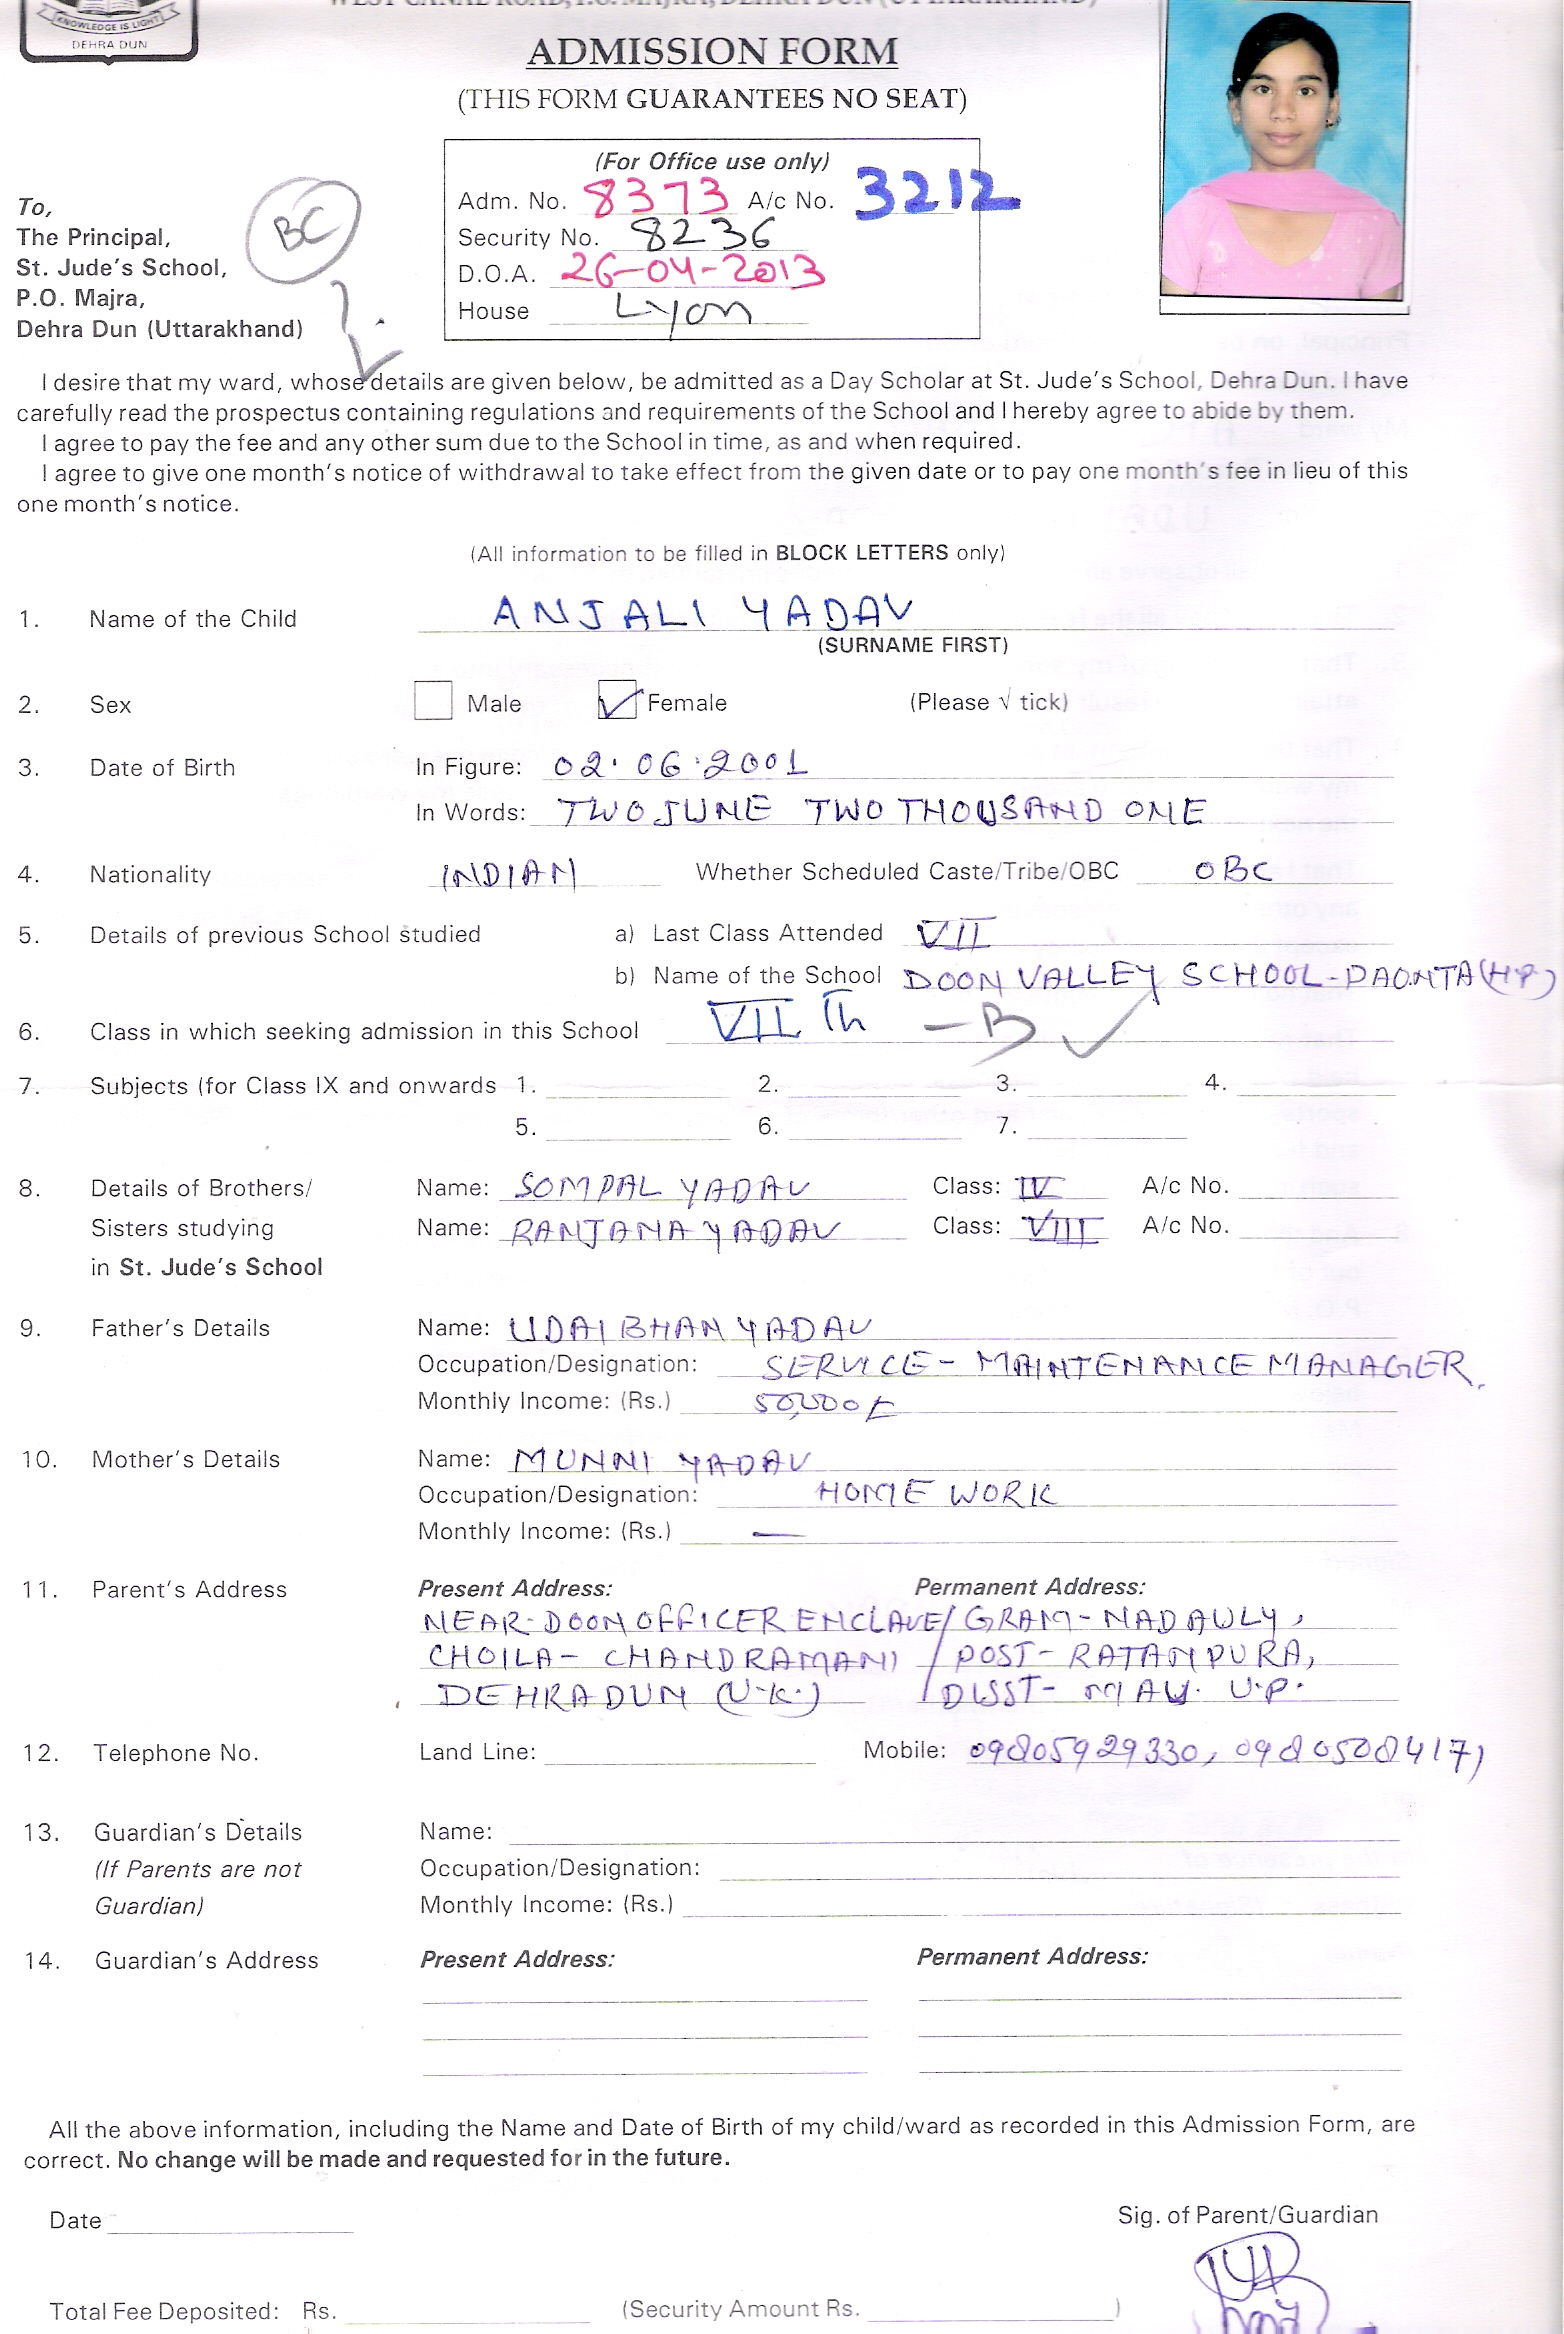 KNOWLEDGE IS LIGHT
DEHRA DUN
WEST CANAL ROAD, P.O. MAJRA, DEHRA DUN (UTTARAKHAND)
ADMISSION FORM
(THIS FORM GUARANTEES NO SEAT)
(For Office use only)
Adm. No. 8373 A/c No. 3212
Security No. 8236
D.O.A. 26-04-2013
House Lyon
BC
To,
The Principal,
St. Jude's School,
P.O. Majra,
Dehra Dun (Uttarakhand)
I desire that my ward, whose details are given below, be admitted as a Day Scholar at St. Jude's School, Dehra Dun. I have
carefully read the prospectus containing regulations and requirements of the School and I hereby agree to abide by them.
I agree to pay the fee and any other sum due to the School in time, as and when required.
I agree to give one month's notice of withdrawal to take effect from the given date or to pay one month's fee in lieu of this
one month's notice.
(All information to be filled in BLOCK LETTERS only)
1. Name of the Child ANJALI YADAV
(SURNAME FIRST)
2. Sex Male ✓ Female (Please √ tick)
3. Date of Birth In Figure: 02.06.2001
In Words: TWO JUNE TWO THOUSAND ONE
4. Nationality INDIAN Whether Scheduled Caste/Tribe/OBC OBC
5. Details of previous School studied a) Last Class Attended VII
b) Name of the School DOON VALLEY SCHOOL-PAONTA (H.P)
6. Class in which seeking admission in this School VII Th - B ✓
7. Subjects (for Class IX and onwards 1. 2. 3. 4.
5. 6. 7.
8. Details of Brothers/ Name: SOMPAL YADAV Class: IV A/c No.
Sisters studying Name: RANJANA YADAV Class: VIII A/c No.
in St. Jude's School
9. Father's Details Name: UDAI BHAN YADAV
Occupation/Designation: SERVICE - MAINTENANCE MANAGER.
Monthly Income: (Rs.) 50,000/-
10. Mother's Details Name: MUNNI YADAV
Occupation/Designation: HOME WORK
Monthly Income: (Rs.) —
11. Parent's Address Present Address: Permanent Address:
NEAR-DOON OFFICER ENCLAVE/ GRAM-NADAULY,
CHOILA- CHANDRAMANI / POST- RATANPURA,
DEHRADUN (U.K.) / DISST- MAU. U.P.
12. Telephone No. Land Line: Mobile: 09805929330, 09805508417)
13. Guardian's Details Name:
(If Parents are not Occupation/Designation:
Guardian) Monthly Income: (Rs.)
14. Guardian's Address Present Address: Permanent Address:
All the above information, including the Name and Date of Birth of my child/ward as recorded in this Admission Form, are
correct. No change will be made and requested for in the future.
Date Sig. of Parent/Guardian
Total Fee Deposited: Rs. (Security Amount Rs. )